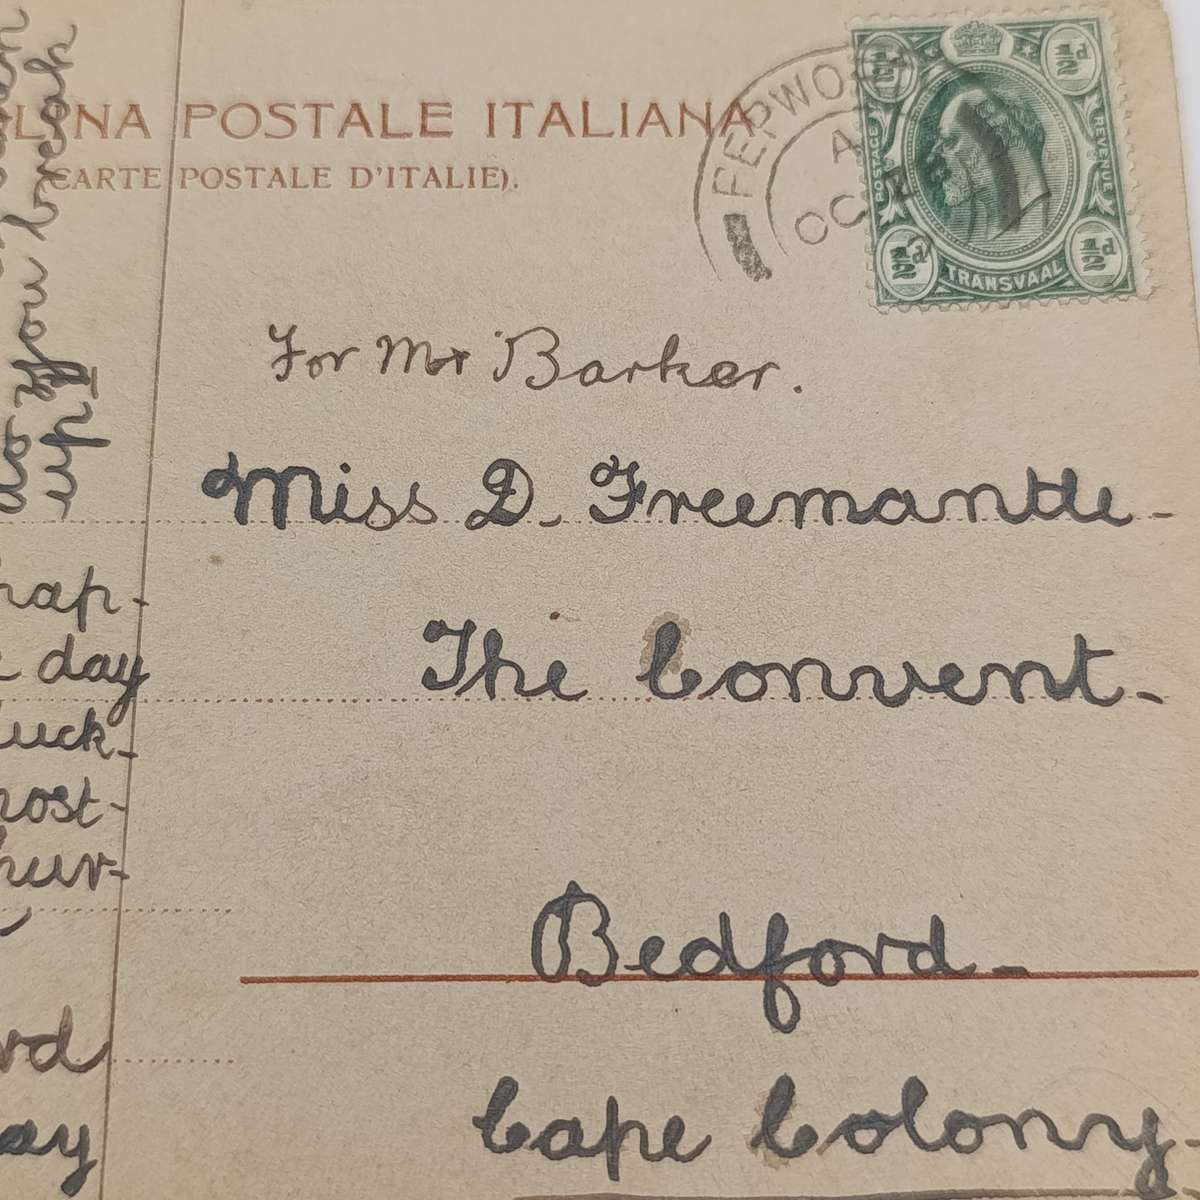 LINA POSTALE ITALIANA
(CARTE POSTALE D'ITALIE).
PERWO
A
OC
1/2d 1/2d
POSTAGE REVENUE
1/2d 1/2d
TRANSVAAL
do you break
up
For Mr Barker.
Miss D. Freemantle -
The Convent -
Bedford -
Cape Colony -
hap-
day
uck-
ost-
hur-
rd
ay